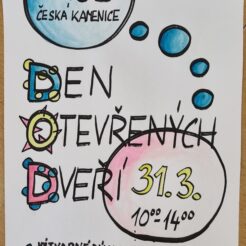 ČESKÁ KAMENICE
DEN
OTEVŘENÝCH
DVEŘÍ
31.3.
10⁰⁰-14⁰⁰